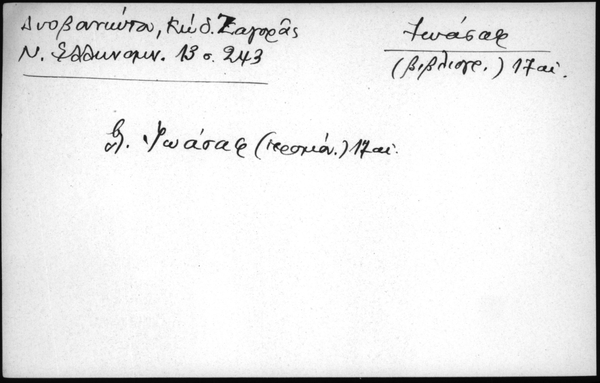 Δυοβουνιώτου, Κώδ. Ζαγορᾶς
Ν. Ἑλληνομν. 13 σ. 243
Ἰωάσαφ
(βιβλιογρ.) 17 αἰ.
βλ. Ἰωάσαφ (ἱερομόν.) 17 αἰ.